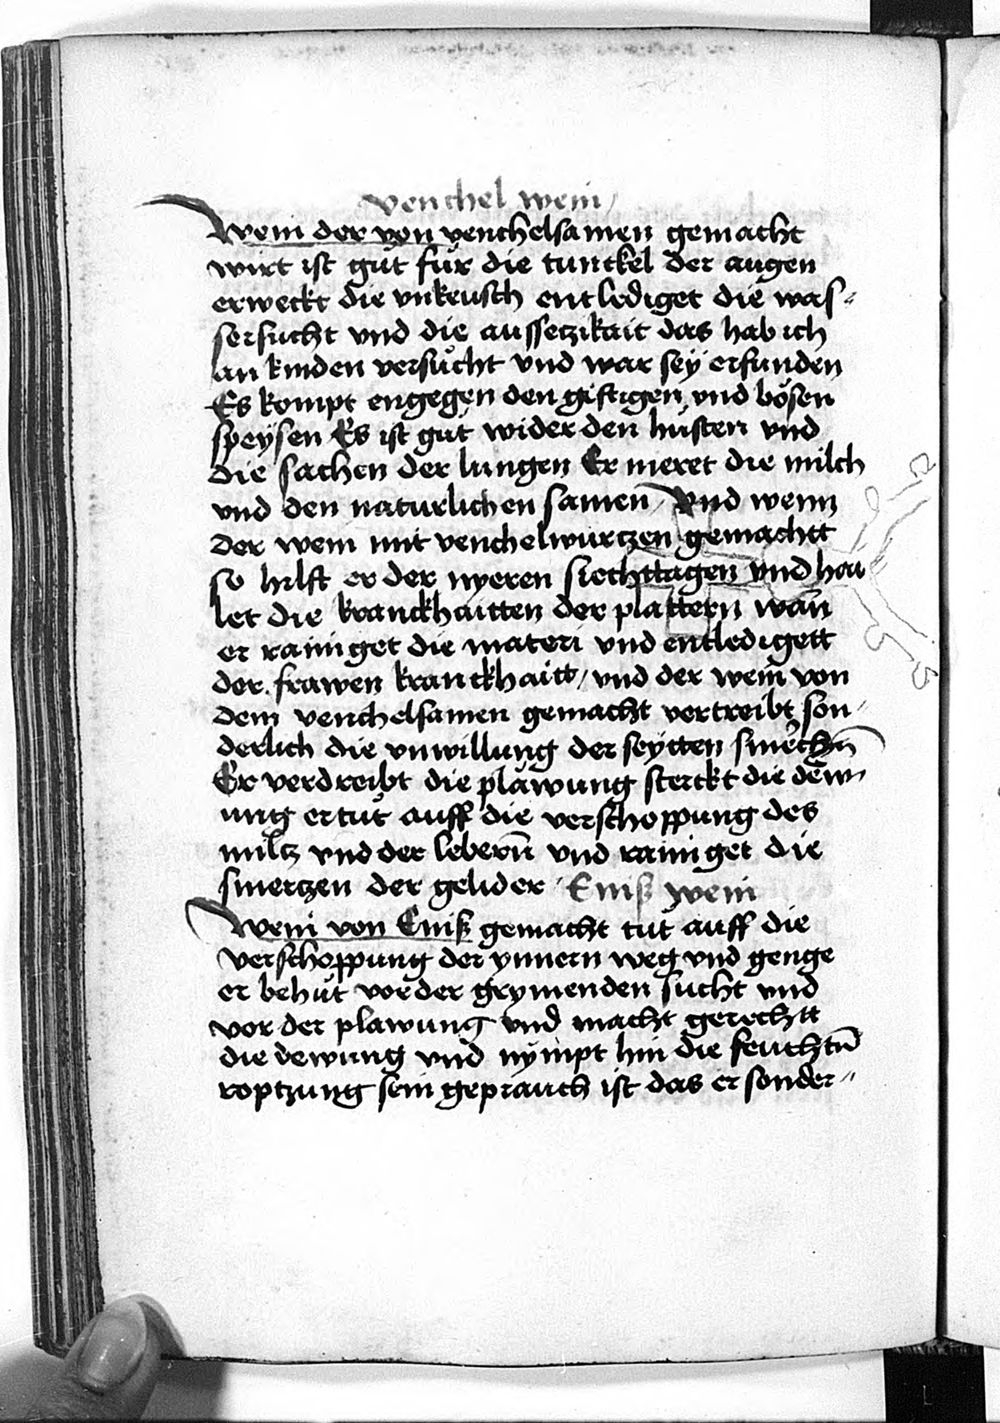 venchel wein
Wein der von venchelsamen gemacht
wirt ist gůt für die tunckel der augen
erweckt die vnkeusch entlediget die was-
sersucht vnd die aussetzikait das hab ich
an kinden versůcht vnd war sey erfunden
Es kompt engegen den giftigen vnd bösen
speysen Es ist gůt wider den hůsten vnd
die sachen der lungen Er meret die milch
vnd den naturlichen samen Vnd wenn
der wein mit venchelwurtzen gemachtt
so hilft er der nyeren siechttagen vnd hai
let die kranckhaitten der plattern wān
er rainiget die materi vnd entledigett
der frawen kranckhaitt / vnd der wein von
dem venchelsamen gemacht vertreibt son-
derlich die vnwillung der seytten
Er verdreibt die pläwung sterckt die dew-
ung er tůt auff die verschoppung des
miltz vnd der leberñ vnd rainiget die
smertzen der gelider Eniß wein
Wein von Eniß gemacht tůt auff die
verschoppung der ynnern weg vnd genge
er behůt vor der grymenden sucht vnd
vor der plawung vnd macht gerechtt
die dewung vnd nympt hin die
roptzung sein geprauch ist das er sonder-